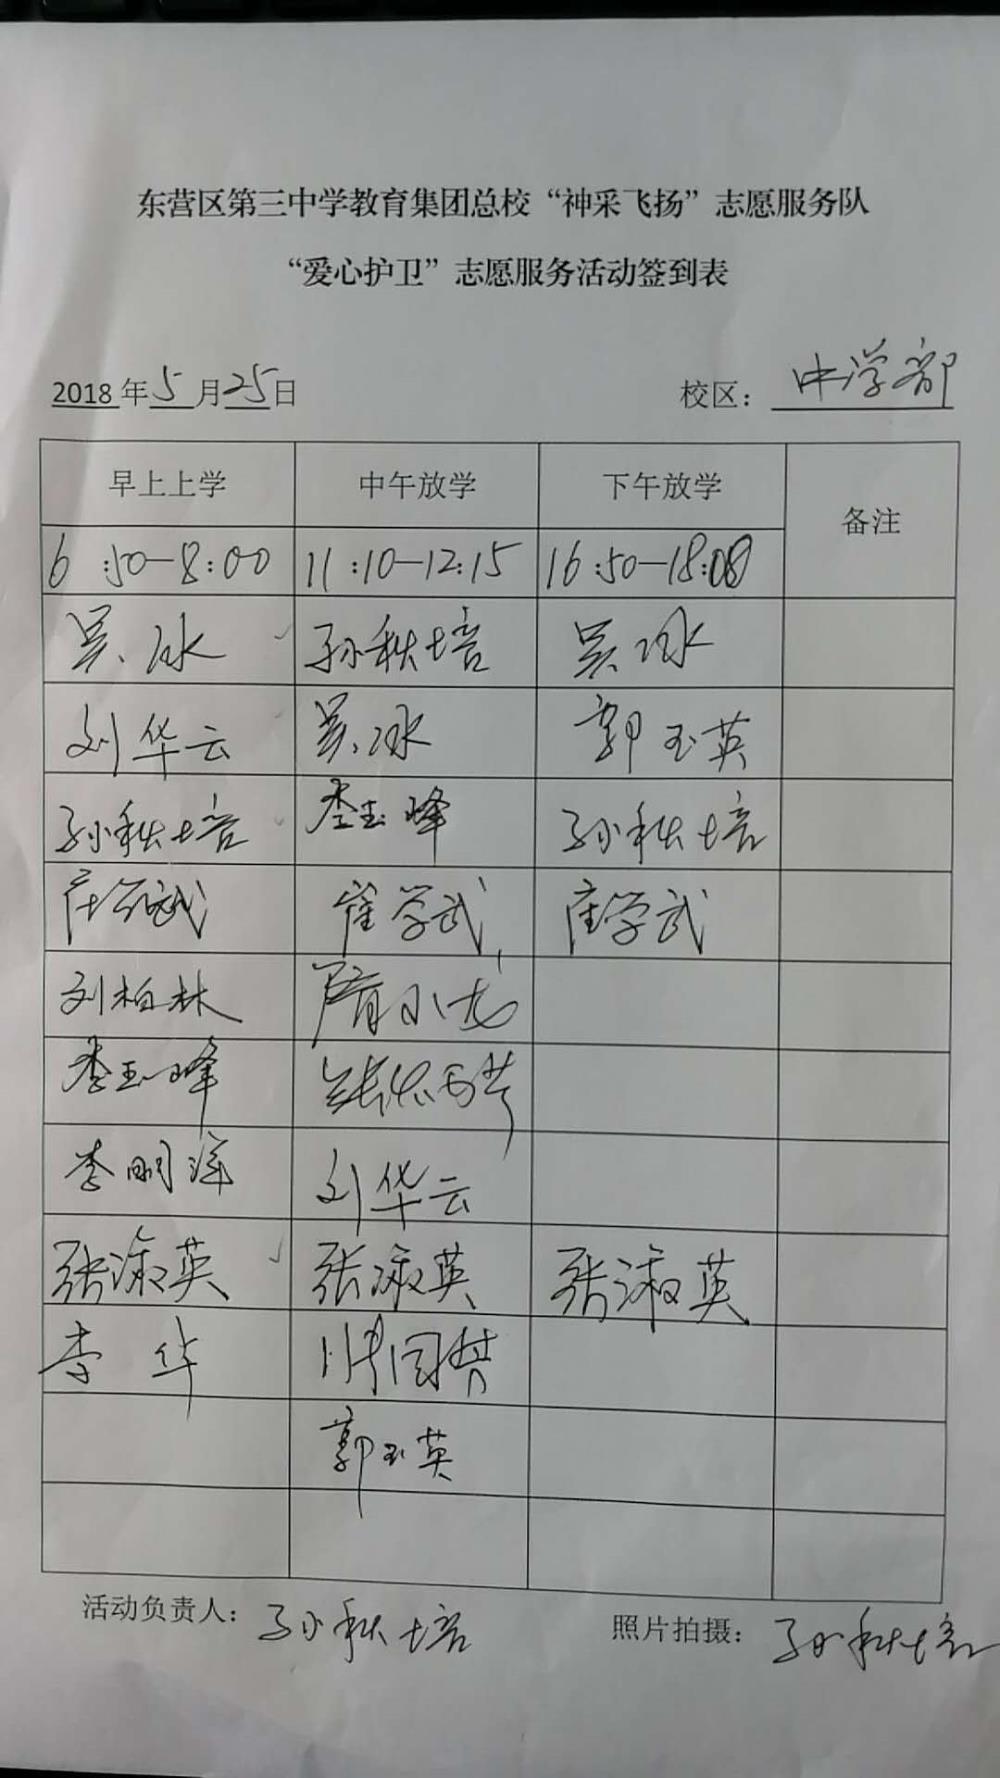 东营区第三中学教育集团总校“神采飞扬”志愿服务队
“爱心护卫”志愿服务活动签到表
2018年5月25日 校区：中学部
早上上学 中午放学 下午放学 备注
6:50-8:00 11:10-12:15 16:50-18:08
吴冰 孙秋培 吴冰
刘华云 吴冰 郭玉英
孙秋培 李玉峰 孙秋培
崔学武 崔学武 崔学武
刘柏林 隋小龙
李玉峰
李明洋 刘华云
张淑英 张淑英 张淑英
李华
郭玉英
活动负责人：孙秋培 照片拍摄：孙秋培